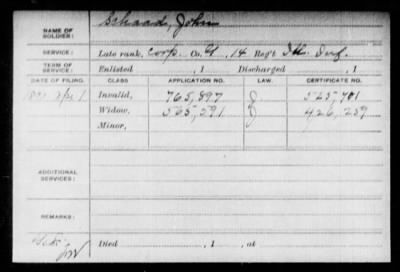 NAME OF SOLDIER: Schaad, John
SERVICE: Late rank, Corp. Co. G, 14 Reg't Ill. Inf.
TERM OF SERVICE: Enlisted , 1 Discharged , 1
DATE OF FILING. CLASS APPLICATION NO. LAW. CERTIFICATE NO.
Invalid, 765,897 J 525,701
Widow, 535,591 J 426,239
Minor,
ADDITIONAL SERVICES:
REMARKS:
Died , 1 , at